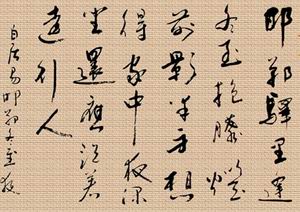 邯鄲驛里逢
冬至抱膝燈
前影伴身想
得家中夜深
坐還應說着
遠行人
白居易邯鄲冬至夜